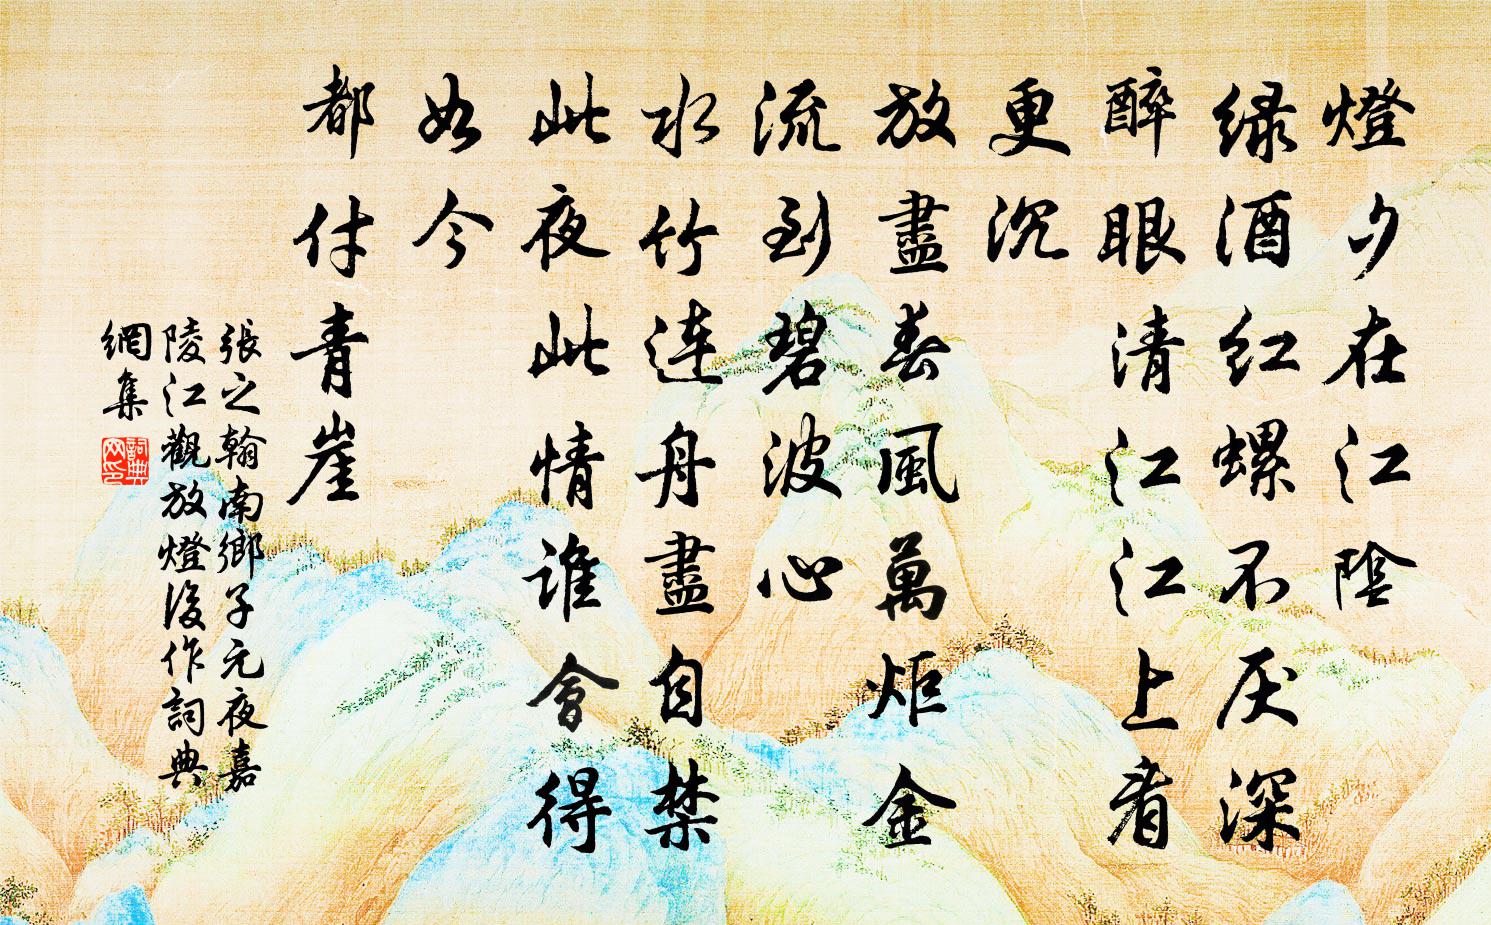 燈夕在江陰
緑酒紅螺不厌深
醉眼清江江上看
更沉
放盡春風萬炬金
流到碧波心
水竹連舟盡自禁
此夜此情誰會得
如今
都付青崖
張之翰南鄉子元夜嘉
陵江觀放燈後作詞典
網集
詞典網印